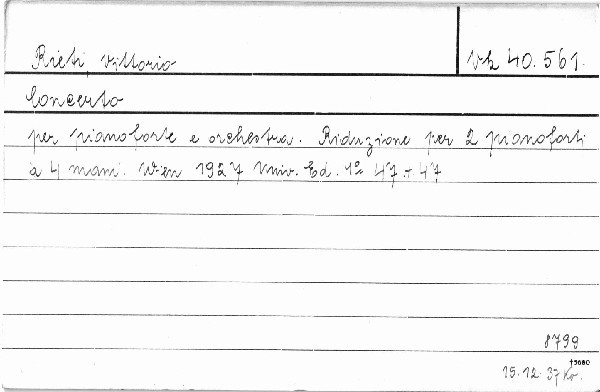 Rieti, Vittorio
Vk 40.561.
Concerto
per pianoforte e orchestra. Riduzione per 2 pianoforti
a 4 mani. Wien 1927 Univ. Ed. 47 + 47
8799
†5680
15.12.37